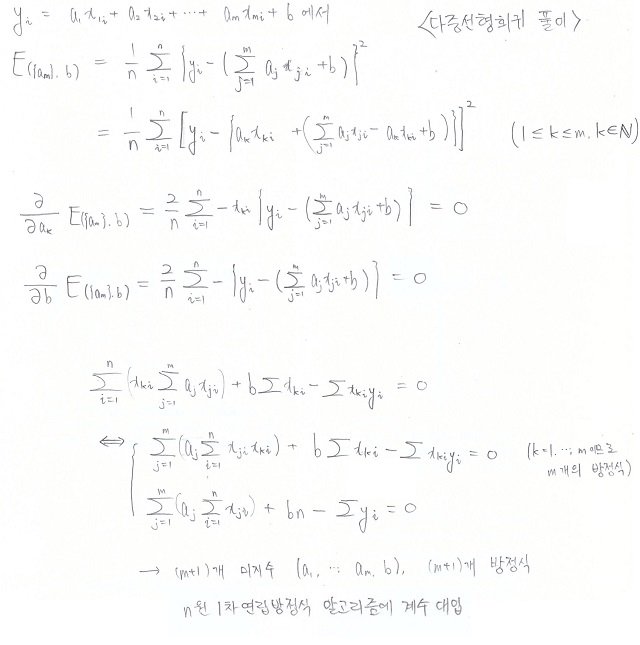 y_i = a_1x_{1i} + a_2x_{2i} + ⋯ + a_mx_{mi} + b 에서
<다중선형회귀 풀이>
E_{({a_m}, b)} = \frac{1}{n} \sum_{i=1}^{n} {y_i - (\sum_{j=1}^{m} a_j x_{ji} + b)}^2
= \frac{1}{n} \sum_{i=1}^{n} [y_i - {a_k x_{ki} + (\sum_{j=1}^{m} a_j x_{ji} - a_k x_{ki} + b)}]^2 (1 ≤ k ≤ m, k ∈ ℕ)
\frac{∂}{∂a_k} E_{({a_m}, b)} = \frac{2}{n} \sum_{i=1}^{n} - x_{ki} {y_i - (\sum_{j=1}^{m} a_j x_{ji} + b)} = 0
\frac{∂}{∂b} E_{({a_m}, b)} = \frac{2}{n} \sum_{i=1}^{n} - {y_i - (\sum_{j=1}^{m} a_j x_{ji} + b)} = 0
\sum_{i=1}^{n} (x_{ki} \sum_{j=1}^{m} a_j x_{ji}) + b Σ x_{ki} - Σ x_{ki} y_i = 0
⟺ { \sum_{j=1}^{m} (a_j \sum_{i=1}^{n} x_{ji} x_{ki}) + b Σ x_{ki} - Σ x_{ki} y_i = 0 (k=1, ⋯, m 이므로
m개의 방정식)
\sum_{j=1}^{m} (a_j \sum_{i=1}^{n} x_{ji}) + bn - Σ y_i = 0
→ (m+1)개 미지수 (a_1, ⋯, a_m, b), (m+1)개 방정식
n원 1차 연립방정식 알고리즘에 계수 대입